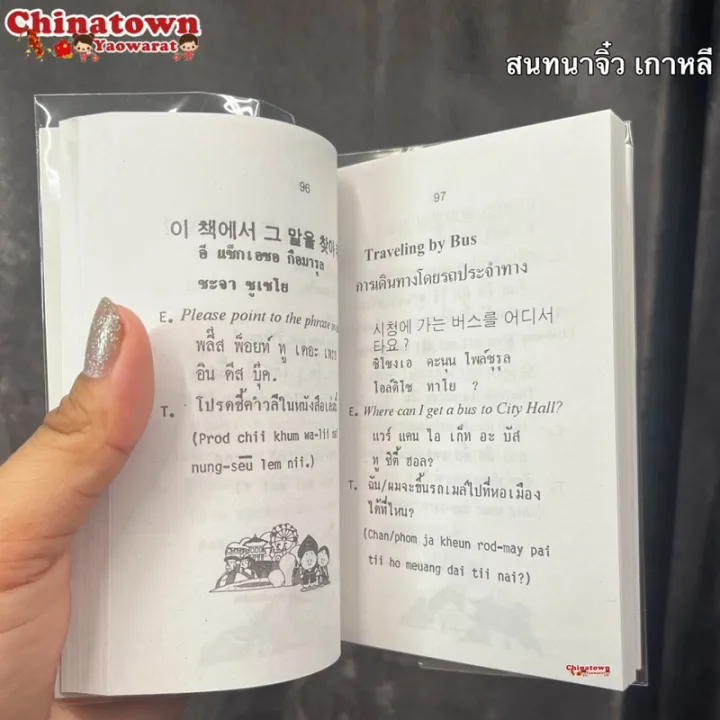 Chinatown
Yaowarat
สนทนาจิ๋ว เกาหลี
96
이 책에서 그 말을 찾아
อี แช็กเอซอ กือมารุล
ชะจา ชูเซโย
E. Please point to the phrase in
พลี๊ส พ็อยท์ ทู เดอะ เฟรซ
อิน ดีส บุ๊ค.
T. โปรดชี้คำวลีในหนังสือเล่มนี้
(Prod chii khum wa-lii nai
nung-seu lem nii.)
97
Traveling by Bus
การเดินทางโดยรถประจำทาง
시청에 가는 버스를 어디서
타요 ?
ชิโชงเอ คะนุน โพล์ซุรุล
โอล์ดิโซ ทาโย ?
E. Where can I get a bus to City Hall?
แวร์ แคน ไอ เก็ท อะ บัส
ทู ซิตี้ ฮอล?
T. ฉัน/ผมจะขึ้นรถเมล์ไปที่หอเมือง
ได้ที่ไหน?
(Chan/phom ja kheun rod-may pai
tii ho meuang dai tii nai?)
Chinatown
Yaowarat